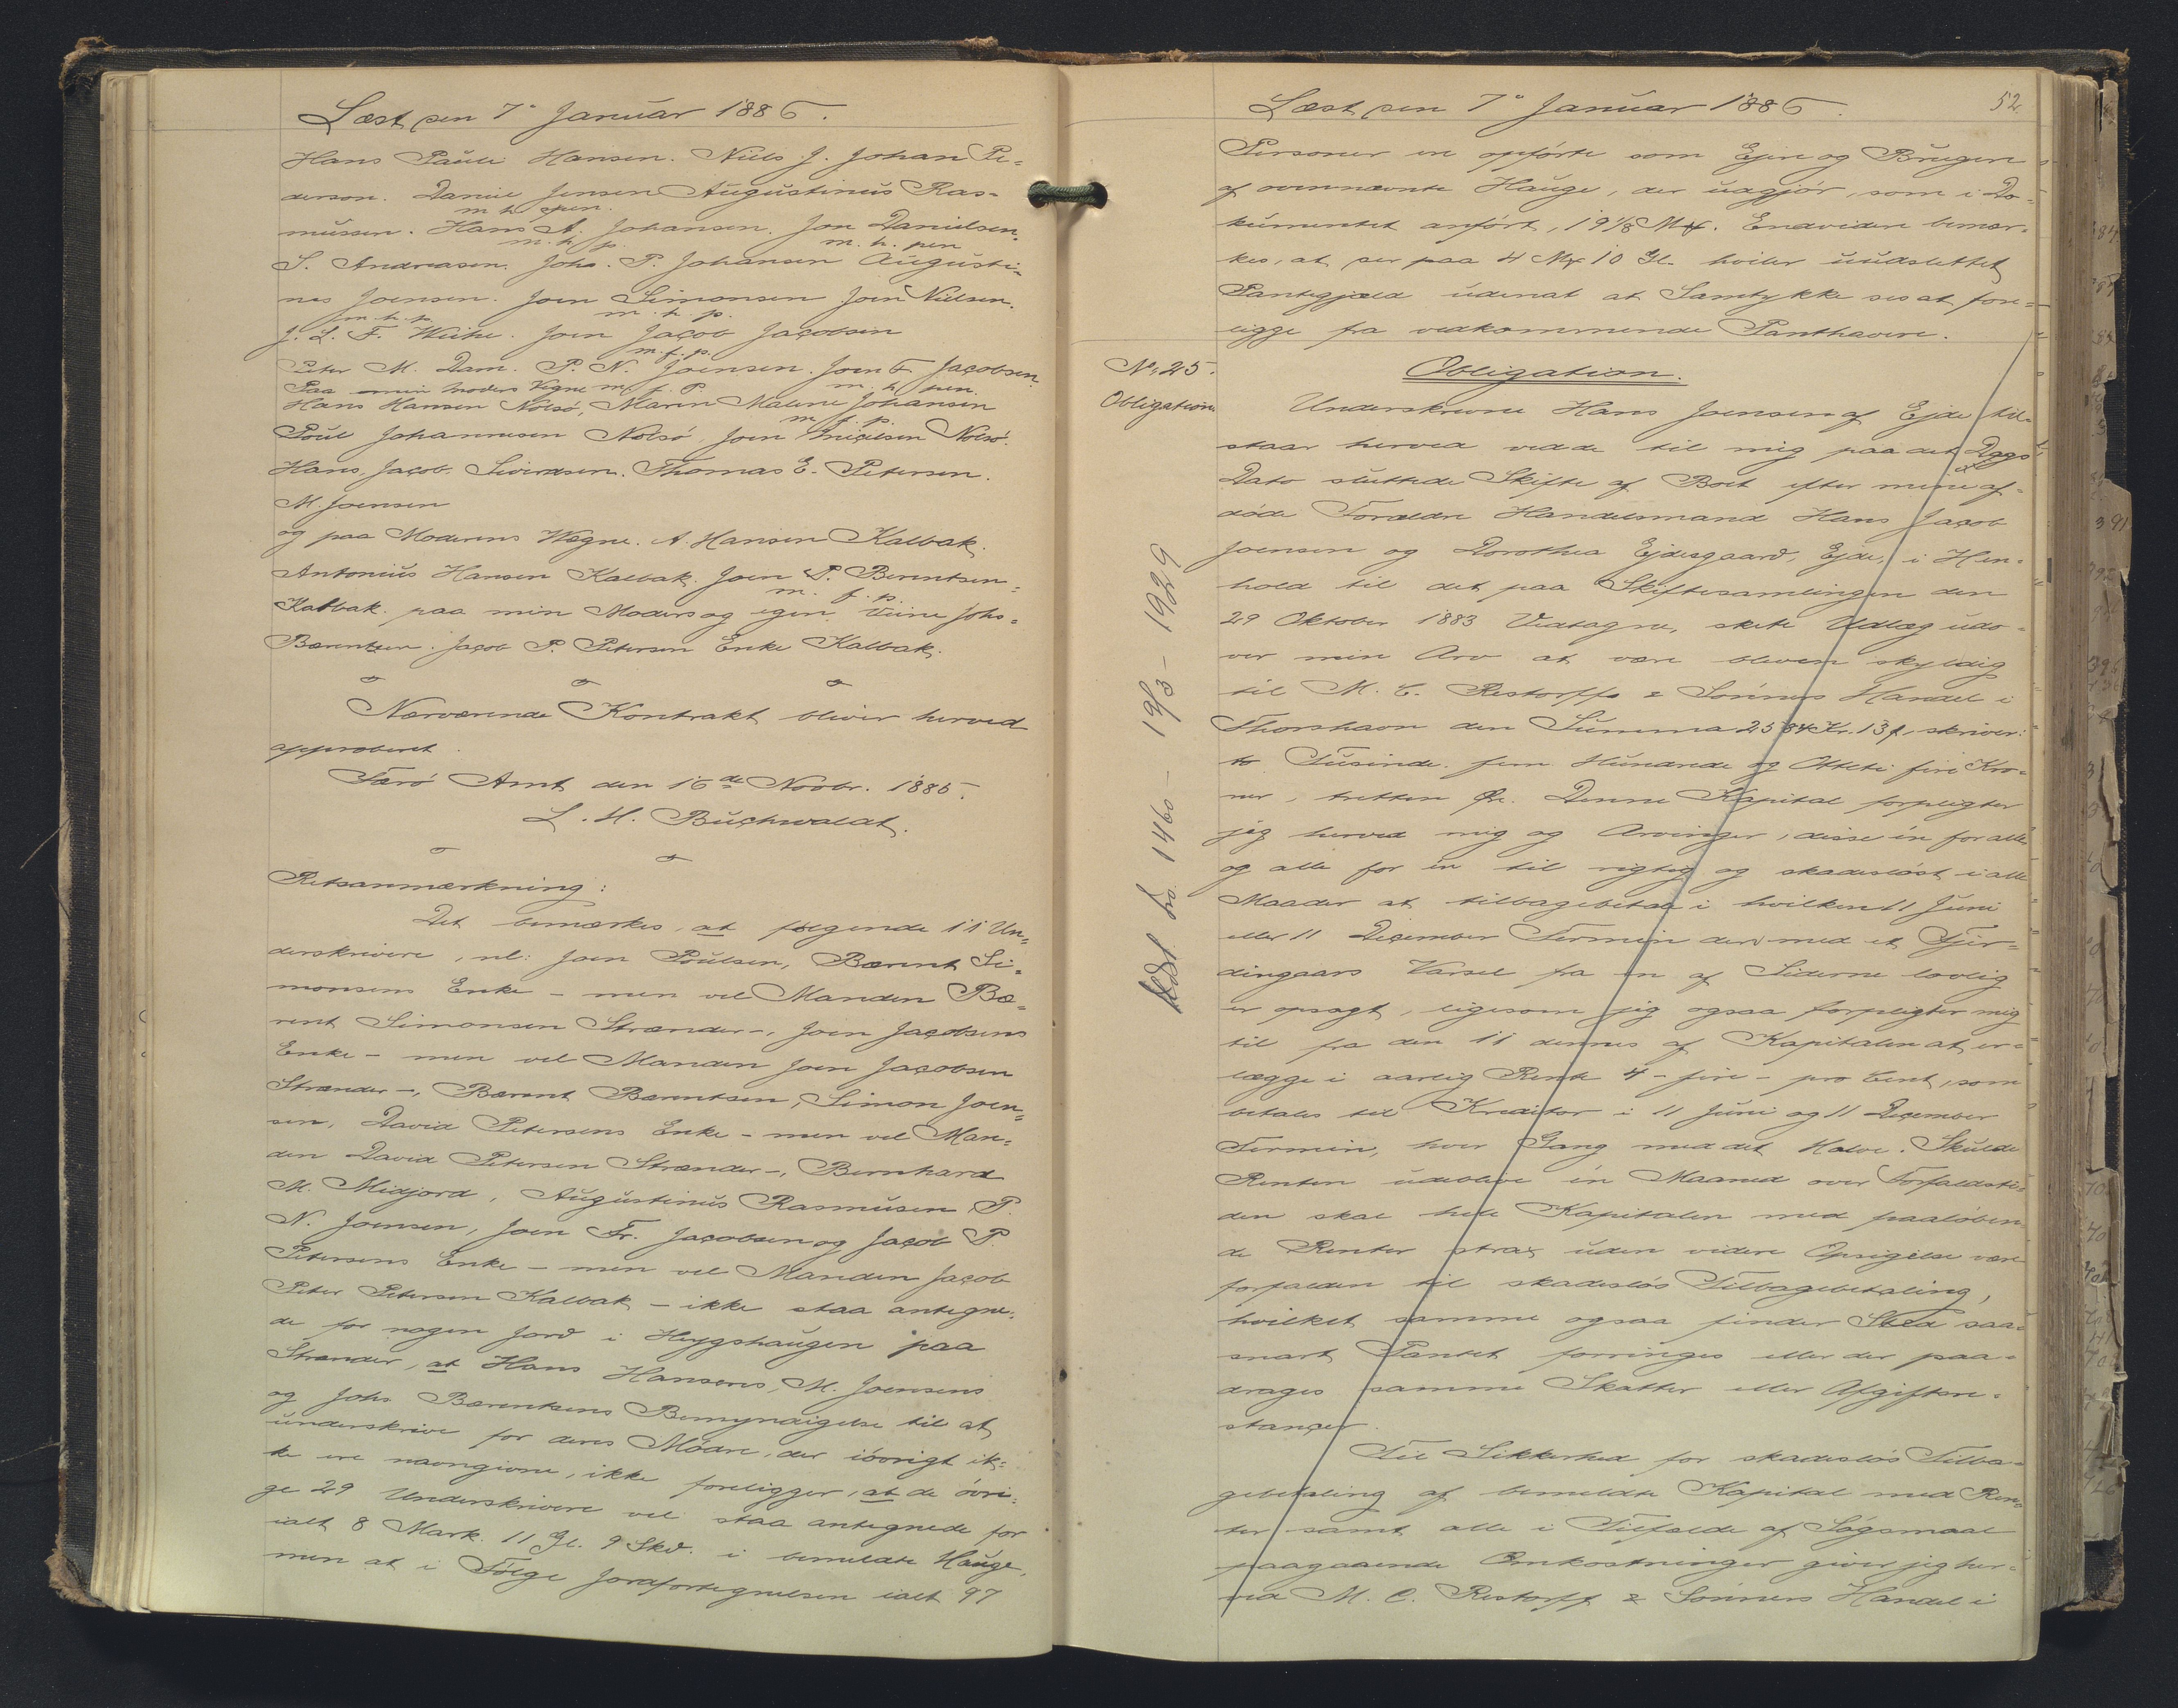 Læst den 7° Januar 1886.
Hans Pauli Hansen. Niels J. Johan Pe-
derson. Daniel Jensen Augustinus Ras-
m. h. pen.
mussen. Hans A. Johansen. Jon Danielsen.
m. h. p. m. h. pen
S. Andreasen. Johs. P. Johansen Augusti-
nes Joensen. Joen Simonsen Joen Nielsen.
m. h. p. m. h. p.
J. L. F. Weihe. Joen Jacob Jacobsen
m. f. p.
Peter M. Dam. P. N. Joensen. Joen F. Jacobsen
Paa min Moders Vegne m. f. P. m. h. pen.
Hans Hansen Nolsø, Maren Malene Johansen
m. f. p.
Poul Johannesen Nolsø. Joen Michelsen Nolsø.
Hans Jacob Sivertsen. Thomas E. Petersen.
M. Joensen
og paa Moderens Vegne. A. Hansen Kalbak.
Antonius Hansen Kalbak. Joen P. Berentsen-
m. f. p.
Kalbak. paa min Moders og egen Veine Johs=
Bærentsen. Jacob P. Petersen Enke Kalbak.
Nærværende Kontrakt bliver herved
approberet.
Færø Amt den 16de Novbr. 1885.
L. H. Buchwaldt.
Retsanmærkning:
Det bemærkes, at følgende 11 Un=
derskrivere, nl: Joen Poulsen, Bærent Si=
monsens Enke - men vel Manden Bæ=
rent Simonsen Strænder -, Joen Jacobsens
Enke - men vel Manden Joen Jacobsen
Strænder -, Bærent Bærentsen, Simon Joen=
sen, David Petersens Enke - men vel Man=
den David Petersen Strænder -, Bernhard
M. Midjord, Augustinus Rasmusen, P.
N. Joensen, Joen Fr. Jacobsen og Jacob P.
Petersens Enke - men vel Manden Jacob
Peter Petersen Kalbak - ikke staa antegne=
de for nogen Jord i Heygshaugen paa
Strænder, at Hans Hansens, M. Joensens
og Johs Bærentsens Bemyndigelse til at
underskrive for deres Mødre, der iøvrigt ik=
ke ere navngivne, ikke foreligger, at de øvri=
ge 29 Underskrivere vel staa antegnede for
ialt 8 Mark. 11 Gl. 9 Skd. i bemeldte Hauge,
men at i Følge Jordfortegnelsen ialt 97
52.
Læst den 7° Januar 1886.
Personer ere opførte som Ejere og Brugere
af ovennævnte Hauge, der udgjør, som i Do-
kumentet anført, 19 1/8 Mk. Endvidere bemær-
kes, at der paa 4 Mk 10 Gl. hviler uudslettet
Pantegjæld udenat at Samtykke ses at fore=
ligge fra vedkommende Panthavere.
No 25.
Obligation
Obligation.
Underskrevne Hans Joensen af Ejde til-
staar herved ved de til mig paa det Dags
Dato sluttede Skifte af Boet efter mine af-
døde Forældre Handelsmand Hans Jacob
Joensen og Dorothea Ejdesgaard, Ejde, i Hen-
hold til det paa Skiftesamlingen den
29 Oktober 1883 Vedtagne, skete Udlæg udo-
ver min Arv at være bleven skyldig
til M. C. Restorffs & Sønners Handel i
Thorshavn den Summa 2584 Kr. 13 f, skriver:
to Tusinde fem Hundrede og Otteti fire Kro-
ner, tretten Øre. Denne Kapital forpligter
jeg herved mig og Arvinger, disse én for alle
og alle for én til rigtig og skadesløst i alle
Maader at tilbagebetale i hvilken 11 Juni
eller 11 December Termin den med et Fjer=
dingaars Varsel fra en af Siderne lovlig
er opsagt, ligesom jeg ogsaa forpligter mig
til fra den 11 dennes af Kapitalen at er-
lægge i aarlig Rente 4 - fire - pro Cent, som
betales til Kreditor i 11 Juni og 11 December
Termin, hver Gang med det Halve. Skulde
Renten udeblive én Maaned over Forfaldsti=
den skal hele Kapitalen med paaløben
de Renter strax uden videre Opsigelse være
forfalden til skadesløs Tilbagebetaling,
hvilket samme ogsaa finder Sted saa-
snart Pantet forringes eller der paa-
drages samme Skatter eller Afgiftsre-
stancer.
Til Sikkerhed for skadesløs Tilba-
gebetaling af bemeldte Kapital med Ren-
ter samt alle i Tilfælde af Søgsmaal
paagaaende Omkostninger giver jeg her-
ved M. C. Restorff & Sønners Handel i
Udsl. fra 1460 - 19/3 - 1929